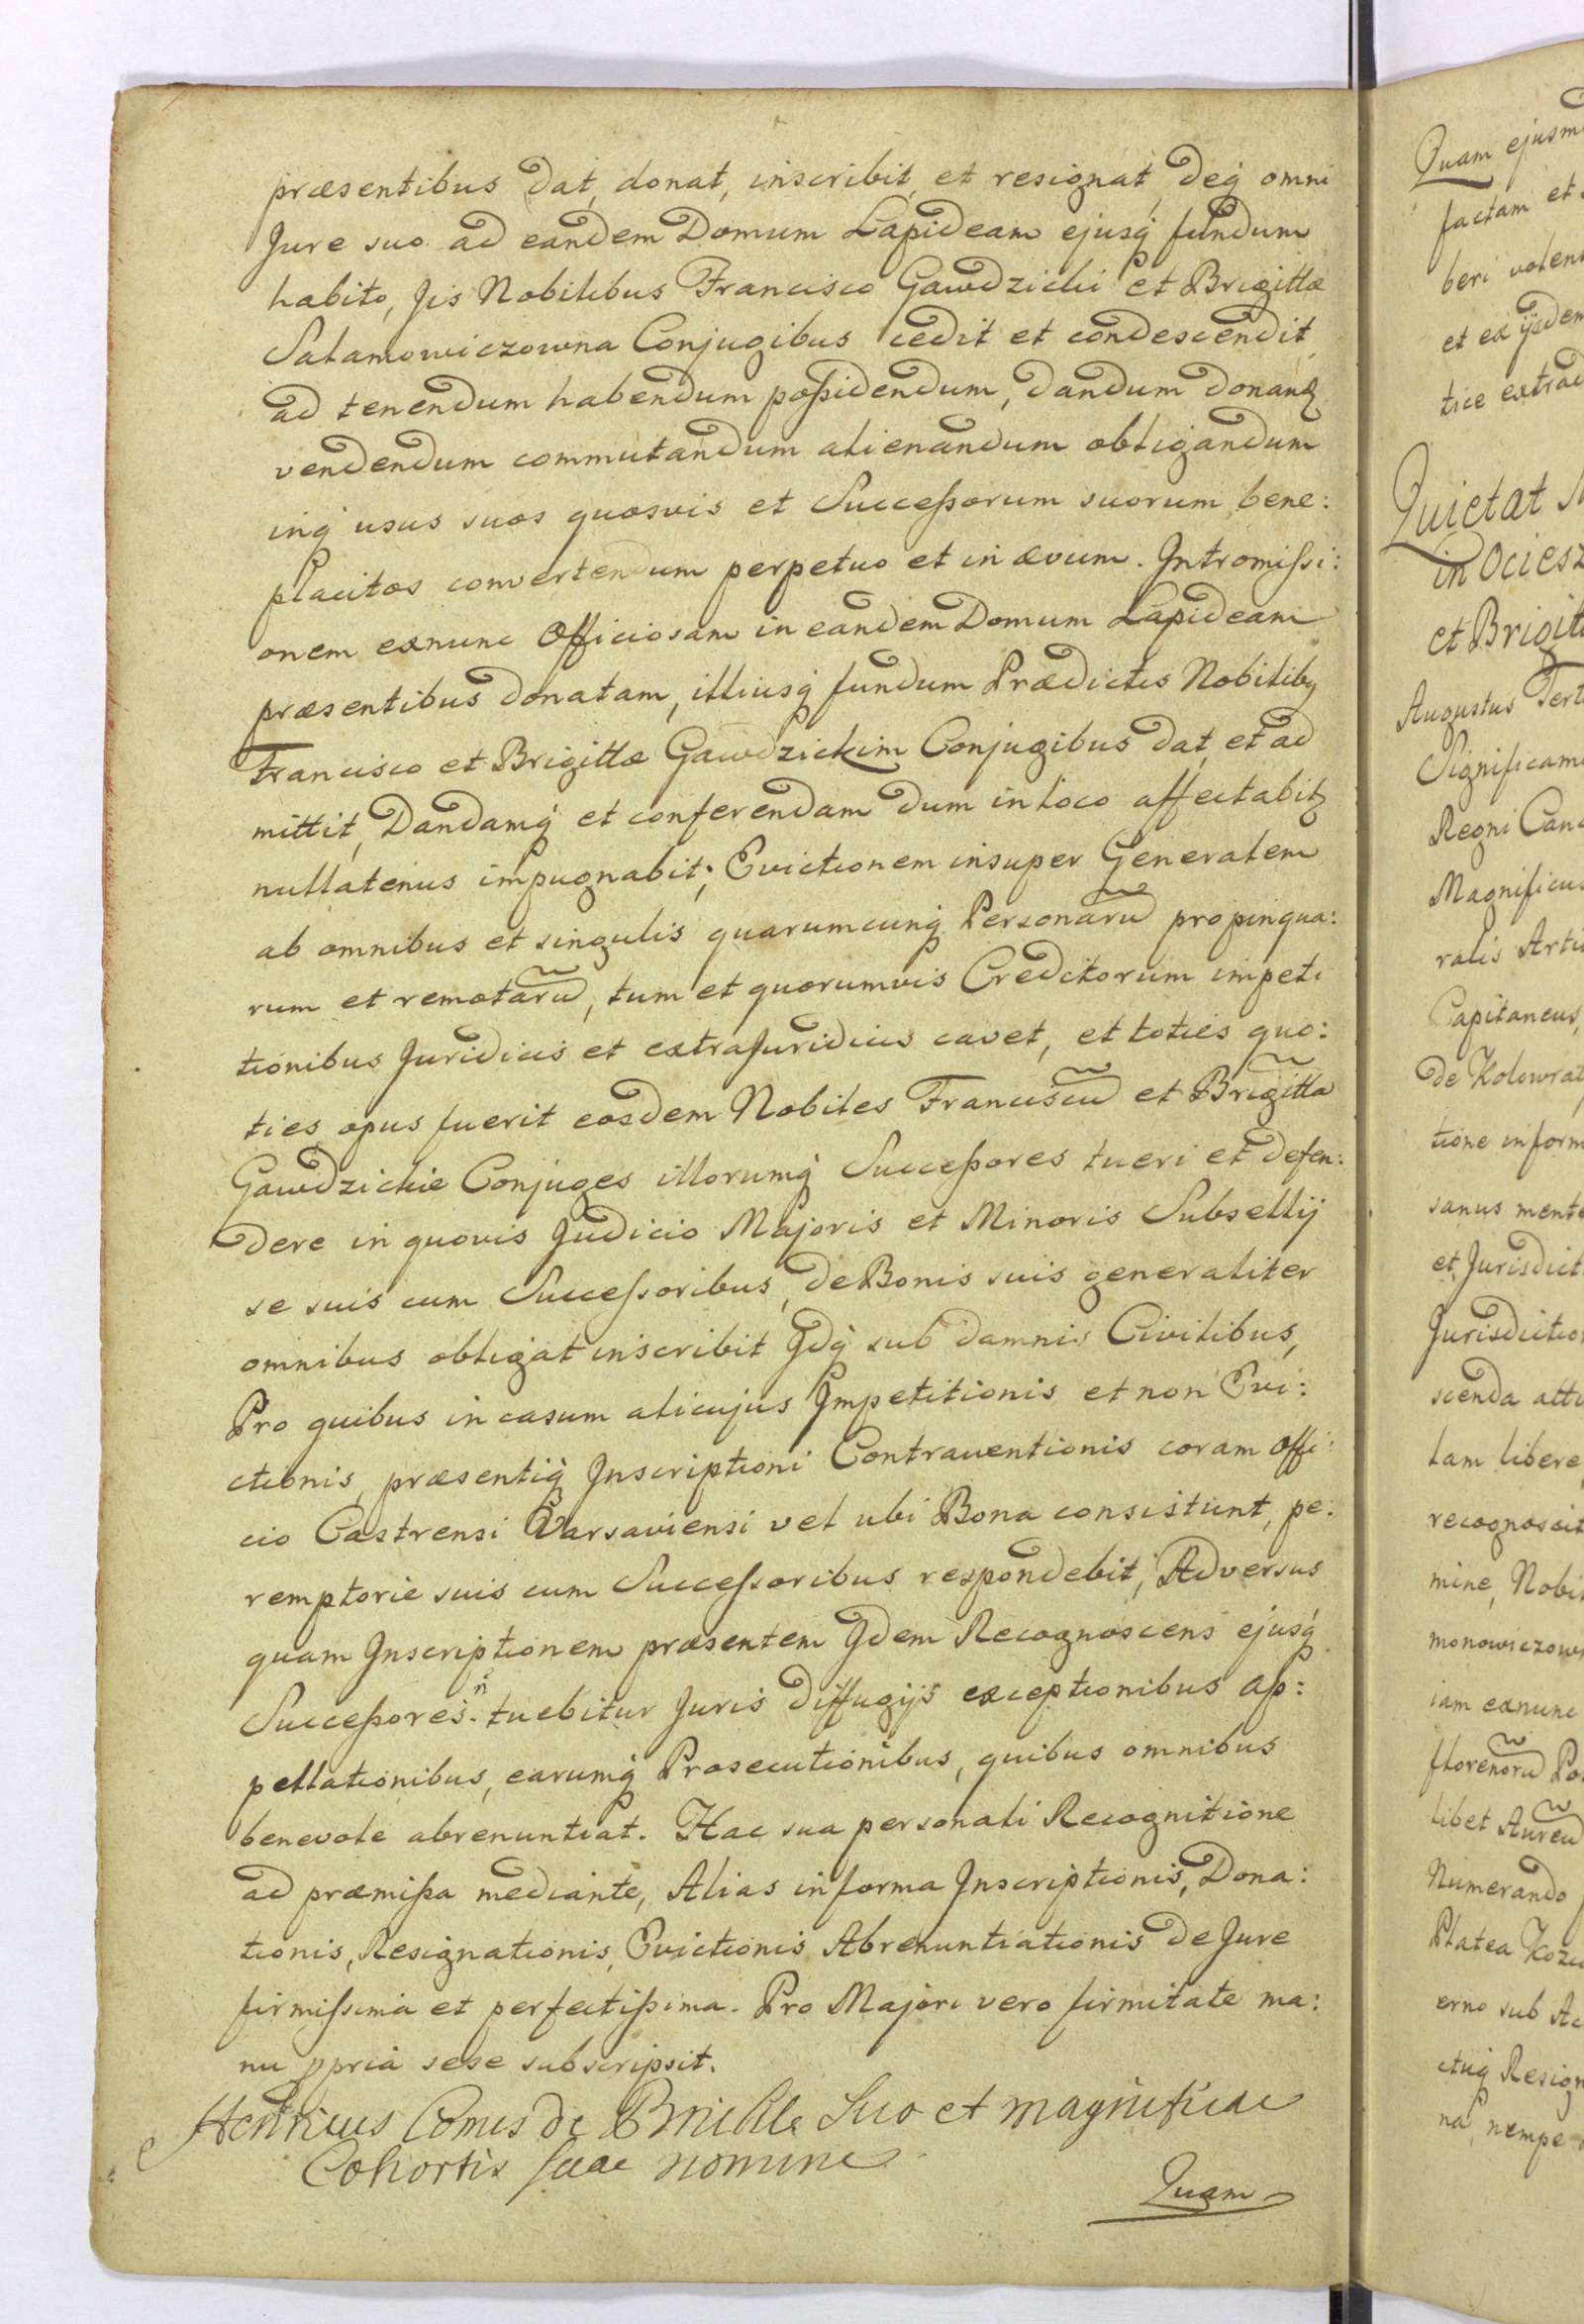 præsentibus Dat, donat, inscribit, et resignat, deq omni
Jure suo ad eandem Domum Lapideam ejusq fundum
habito, Jis Nobilibus Francisco Gawdzicki et Brigittæ
Salamowiczowna Conjugibus cedit et condescendit
ad tenendum habendum possidendum, dandum donand
vendendum commutandum alienandum obligandum
inq usus suos quosvis et Successorum suorum bene:
placitos convertendum perpetuo et in ævum. Intromissi:
onem exnunc Officiosam in eandem Domum Lapideam
præsentibus donatam, illiusq fundum Prædictis Nobilibq
Francisco et Brigittæ Gawdzickim Conjugibus dat, et ad
mittit, Dandamq et conferendam dum in loco affectabitz
nullatenus impugnabit; Evictionem insuper Generalem
ab omnibus et singulis quarumcunq Personarũ propinqua:
rum et remotarũ, tum et quorumvis Creditorum impeti
tionibus Juridicis et extrajuridicis cavet, et toties quo:
ties opus fuerit eosdem Nobiles Franciscũ et Brigittã
Gawdzickie Conjuges illorumq Successores tueri et defen:
dere in quovis Judicio Majoris et Minoris Subsellij
se suis cum Successoribus, de Bonis suis generaliter
omnibus obligat inscribit Idq sub damnis Civilibus,
Pro quibus in casum alicujus Impetitionis et non Evi:
ctionis, præsentiq Inscriptioni Contraventionis coram Offi:
cio Castrensi Varsaviensi vel ubi Bona consistunt, pe:
remptorie suis cum Successoribus respondebit, Adversus
quam Inscriptionem præsentem Idem Recognoscens ejusq
Successores ñ tuebitur Juris diffugijs exceptionibus ap:
pellationibus, earumq Prosecutionibus, quibus omnibus
benevole abrenuntiat. Hac sua personali Recognitione
ad præmissa mediante, Alias in forma Inscriptionis, Dona:
tionis, Resignationis, Evictionis, Abrenuntiationis de Jure
firmissima et perfectissima. Pro Majori vero firmitate ma:
nu ppria sese subscripsit.
Henricus Comes de Brühl Suo et magnificae
Cohortis suae nomine
Quam
Quam ejusm
factam et
beri volen
et ex ijsdem
tice extrad
Quietat
in Ociesz
et Brigit
Augustus Tert
Significam
Regni Canc
Magnificus
ralis Arti
Capitaneus,
de Kolowrat
tione inform
sanus mente
et Jurisdict
Jurisdictio
scenda atti
lam libere
recognoscit
mine, Nobi
monowiczow
iam exnunc
florenorũ Po
libet Aureũ
Numerando
Platea Kozi
erno sub Ac
ctuq Resign
na, nempe